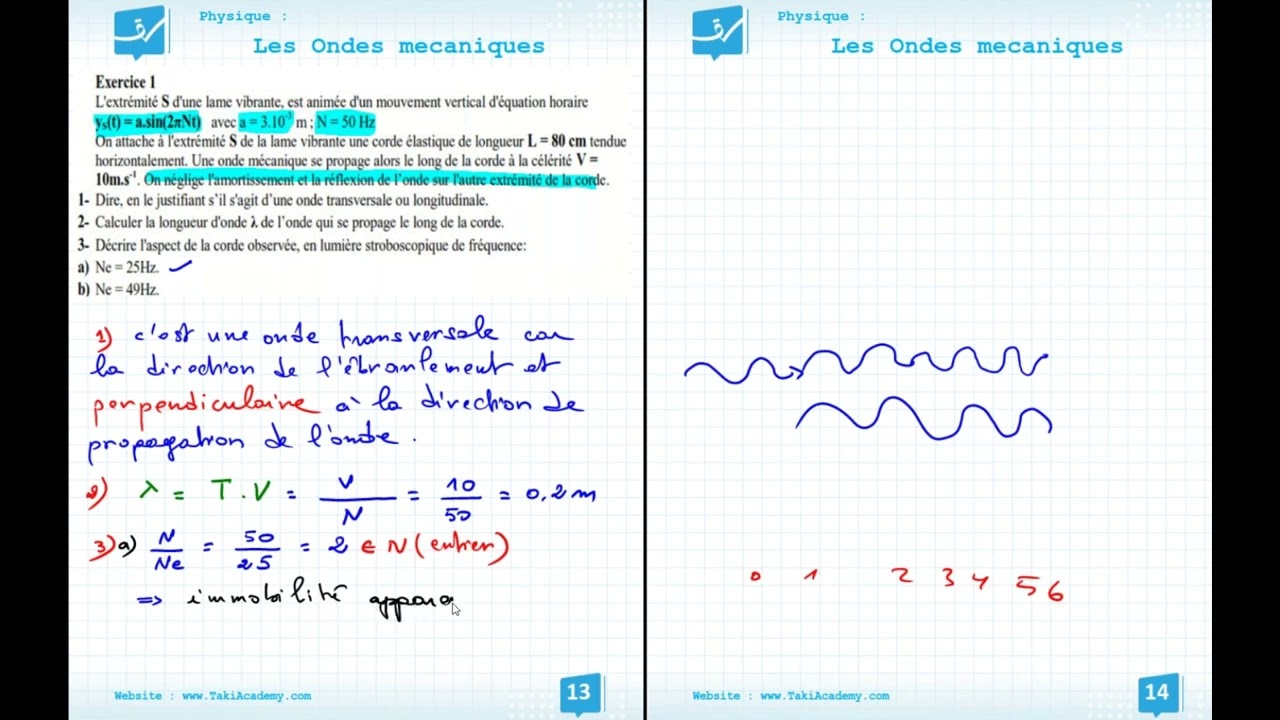 Physique :
Les Ondes mecaniques
Exercice 1
L'extrémité S d'une lame vibrante, est animée d'un mouvement vertical d'équation horaire
yₛ(t) = a.sin(2πNt) avec a = 3.10⁻³ m ; N = 50 Hz
On attache à l'extrémité S de la lame vibrante une corde élastique de longueur L = 80 cm tendue
horizontalement. Une onde mécanique se propage alors le long de la corde à la célérité V =
10m.s⁻¹. On néglige l'amortissement et la réflexion de l'onde sur l'autre extrémité de la corde.
1- Dire, en le justifiant s'il s'agit d'une onde transversale ou longitudinale.
2- Calculer la longueur d'onde λ de l'onde qui se propage le long de la corde.
3- Décrire l'aspect de la corde observée, en lumière stroboscopique de fréquence:
a) Ne = 25Hz.
b) Ne = 49Hz.
1) c'est une onde transversale car
la direction de l'ébranlement et
perpendiculaire à la direction de
propagation de l'onde.
2) λ = T.V = V/N = 10/50 = 0,2m
3) a) N/Ne = 50/25 = 2 ∈ N (entier)
=> immobilité appara
Website : www.TakiAcademy.com
13
Physique :
Les Ondes mecaniques
0 1 2 3 4 5 6
Website : www.TakiAcademy.com
14